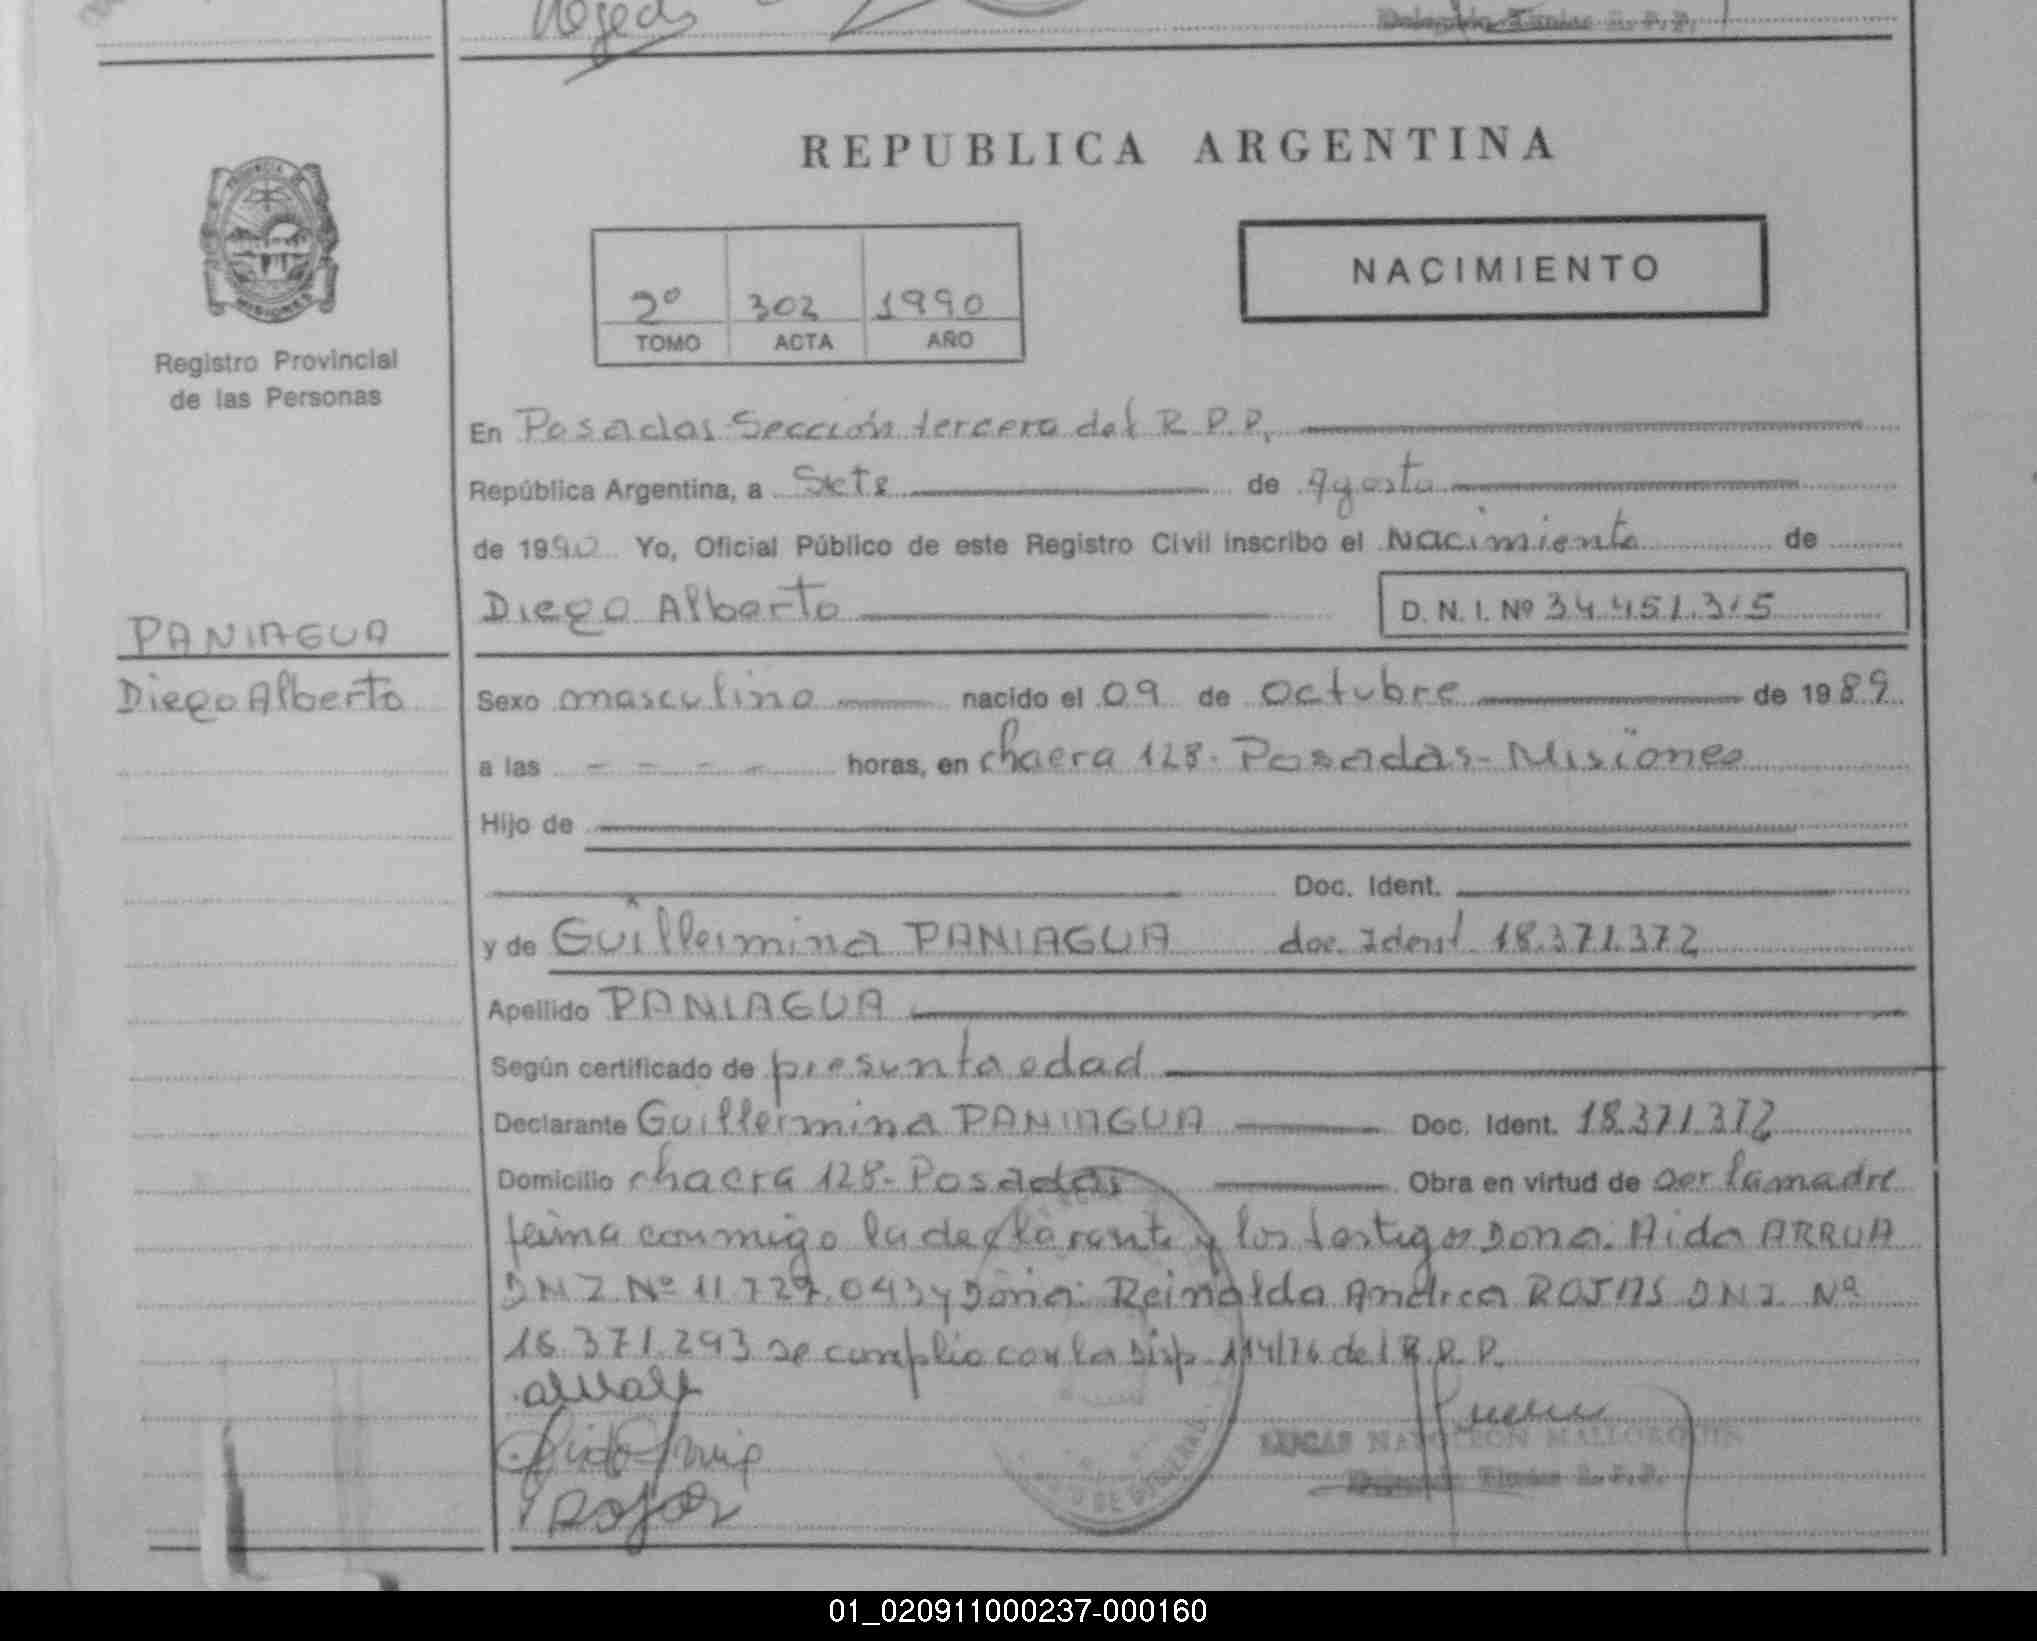 REPUBLICA ARGENTINA
NACIMIENTO
2º 302 1990
TOMO ACTA AÑO
PROVINCIA DE
MISIONES
Registro Provincial
de las Personas
En Posadas Sección tercera del R.P.P.
República Argentina, a Siete de Agosto
de 1990 Yo, Oficial Público de este Registro Civil inscribo el Nacimiento de
Diego Alberto D. N. I. Nº 34.451.315
PANIAGUA
Diego Alberto
Sexo masculino nacido el 09 de Octubre de 1989
a las - - - - horas, en chacra 128- Posadas- Misiones
Hijo de
Doc. Ident.
y de Guillermina PANIAGUA doc. Ident 18.371.372
Apellido PANIAGUA
Según certificado de presunta edad
Declarante Guillermina PANIAGUA Doc. Ident. 18.371.372
Domicilio chacra 128- Posadas Obra en virtud de ser la madre
firma conmigo la declarante y los testigos Dona: Aida ARRUA
DNI Nº 11.729.043 y Doña: Reinalda Andrea ROJAS DNI Nº
18.371.293 se cumplio con la Disp. 114/76 del R.P.P.
Rojas
LUCAS NAPOLEON MALLORQUIN
R.P.P.
01_020911000237-000160